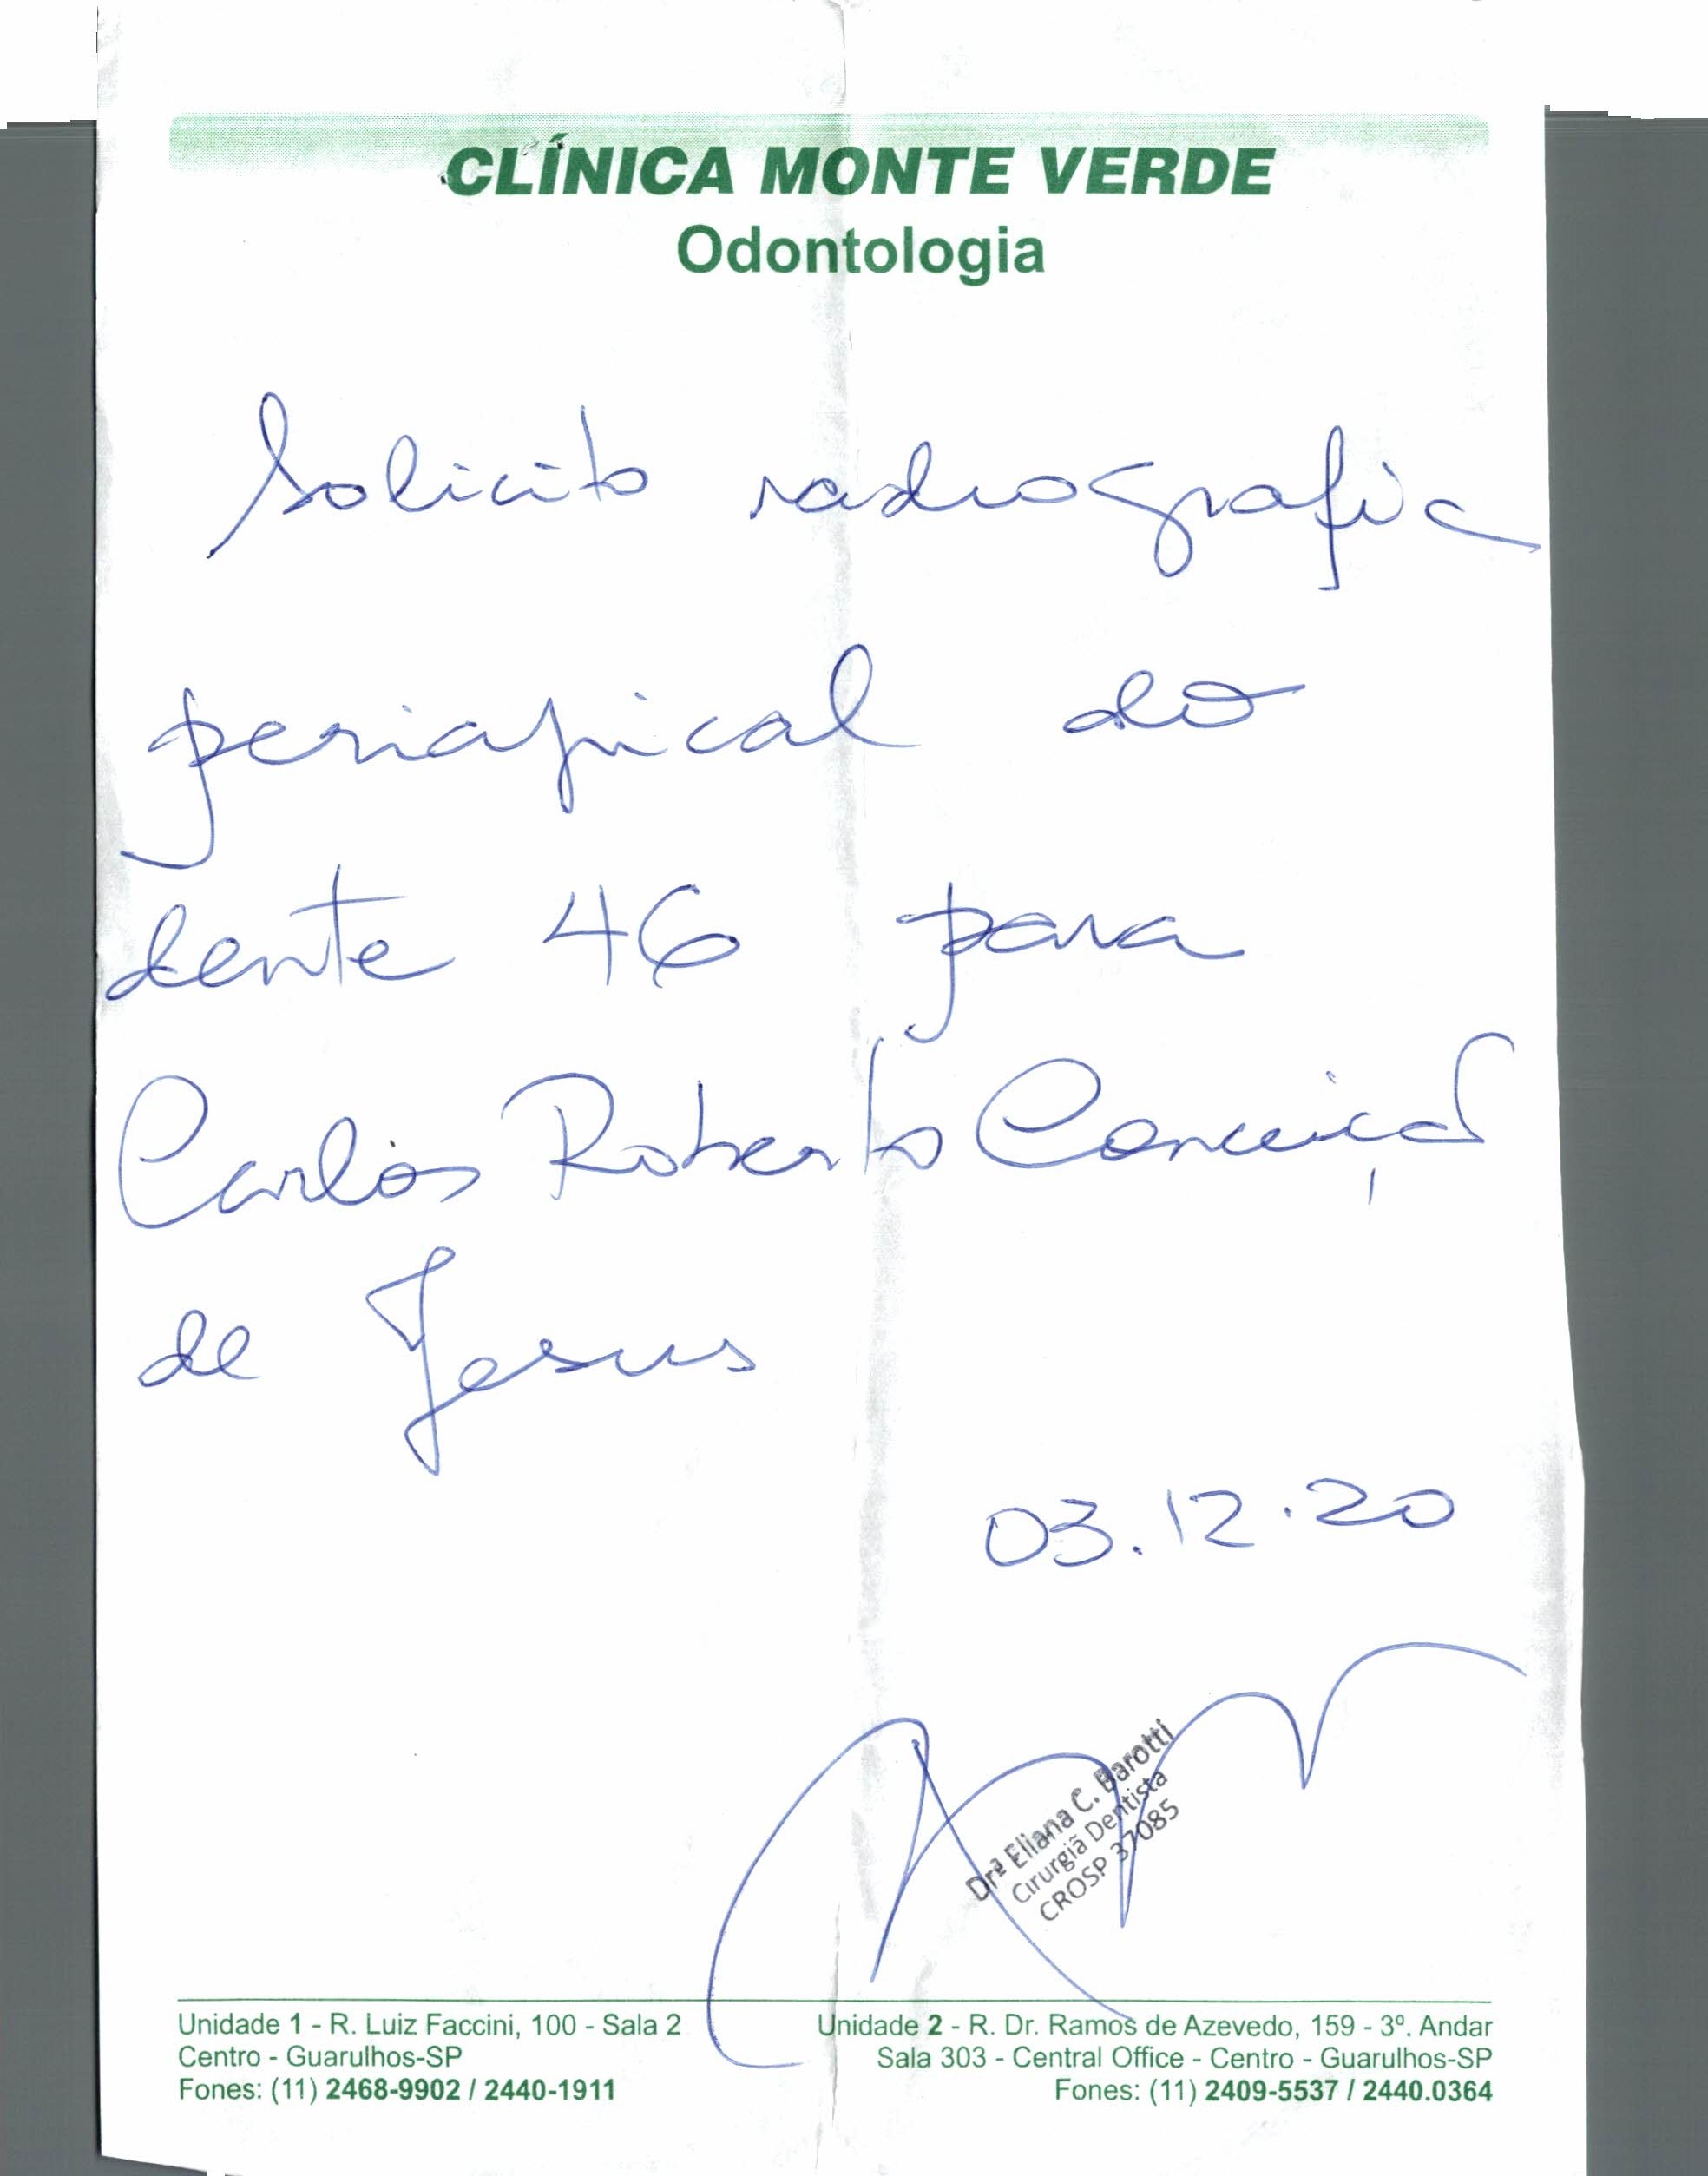 CLÍNICA MONTE VERDE
Odontologia
Solicito radiografia
periapical do
dente 46 para
Carlos Roberto Conceição
de Jesus
03.12.20
Drª Eliana C. Barotti
Cirurgiã Dentista
CROSP 37085
Unidade 1 - R. Luiz Faccini, 100 - Sala 2
Centro - Guarulhos-SP
Fones: (11) 2468-9902 / 2440-1911
Unidade 2 - R. Dr. Ramos de Azevedo, 159 - 3º. Andar
Sala 303 - Central Office - Centro - Guarulhos-SP
Fones: (11) 2409-5537 / 2440.0364